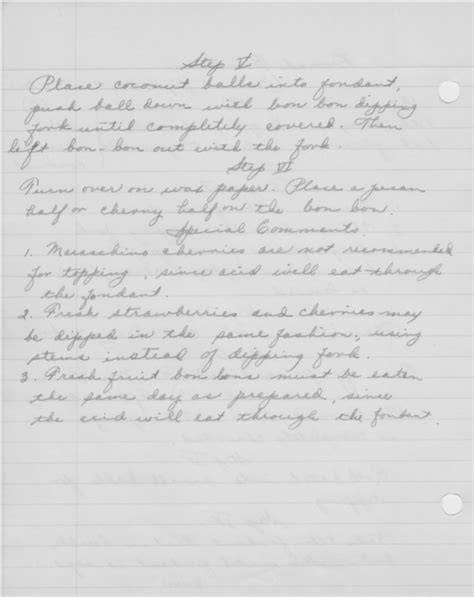 Step V
Place coconut balls into fondant,
push ball down with bon bon dipping
fork until completely covered. Then
left bon-bon out with the fork.
Step VI
Turn over on wax paper. Place a pecan
half or cherry half on the bon bon.
Special Comments.
1. Maraschino cherries are not recommended
for topping, since acid will eat through
the fondant.
2. Fresh strawberries and cherries may
be dipped in the same fashion, using
stems instead of dipping fork.
3. Fresh fruit bon bons must be eaten
the same day as prepared, since
the acid will eat through the fondant.